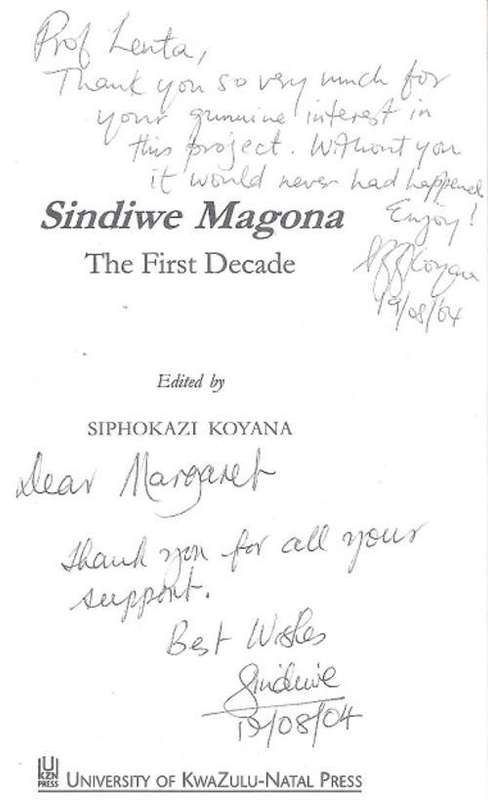 Prof Lenta,
Thank you so very much for
your genuine interest in
this project. Without you
it would never had happened
Enjoy!
Koyana
19/08/04
Sindiwe Magona
The First Decade
Edited by
SIPHOKAZI KOYANA
Dear Margaret
Thank you for all your
support.
Best Wishes
Sindiwe
19/08/04
UKZN PRESS
UNIVERSITY OF KWAZULU-NATAL PRESS